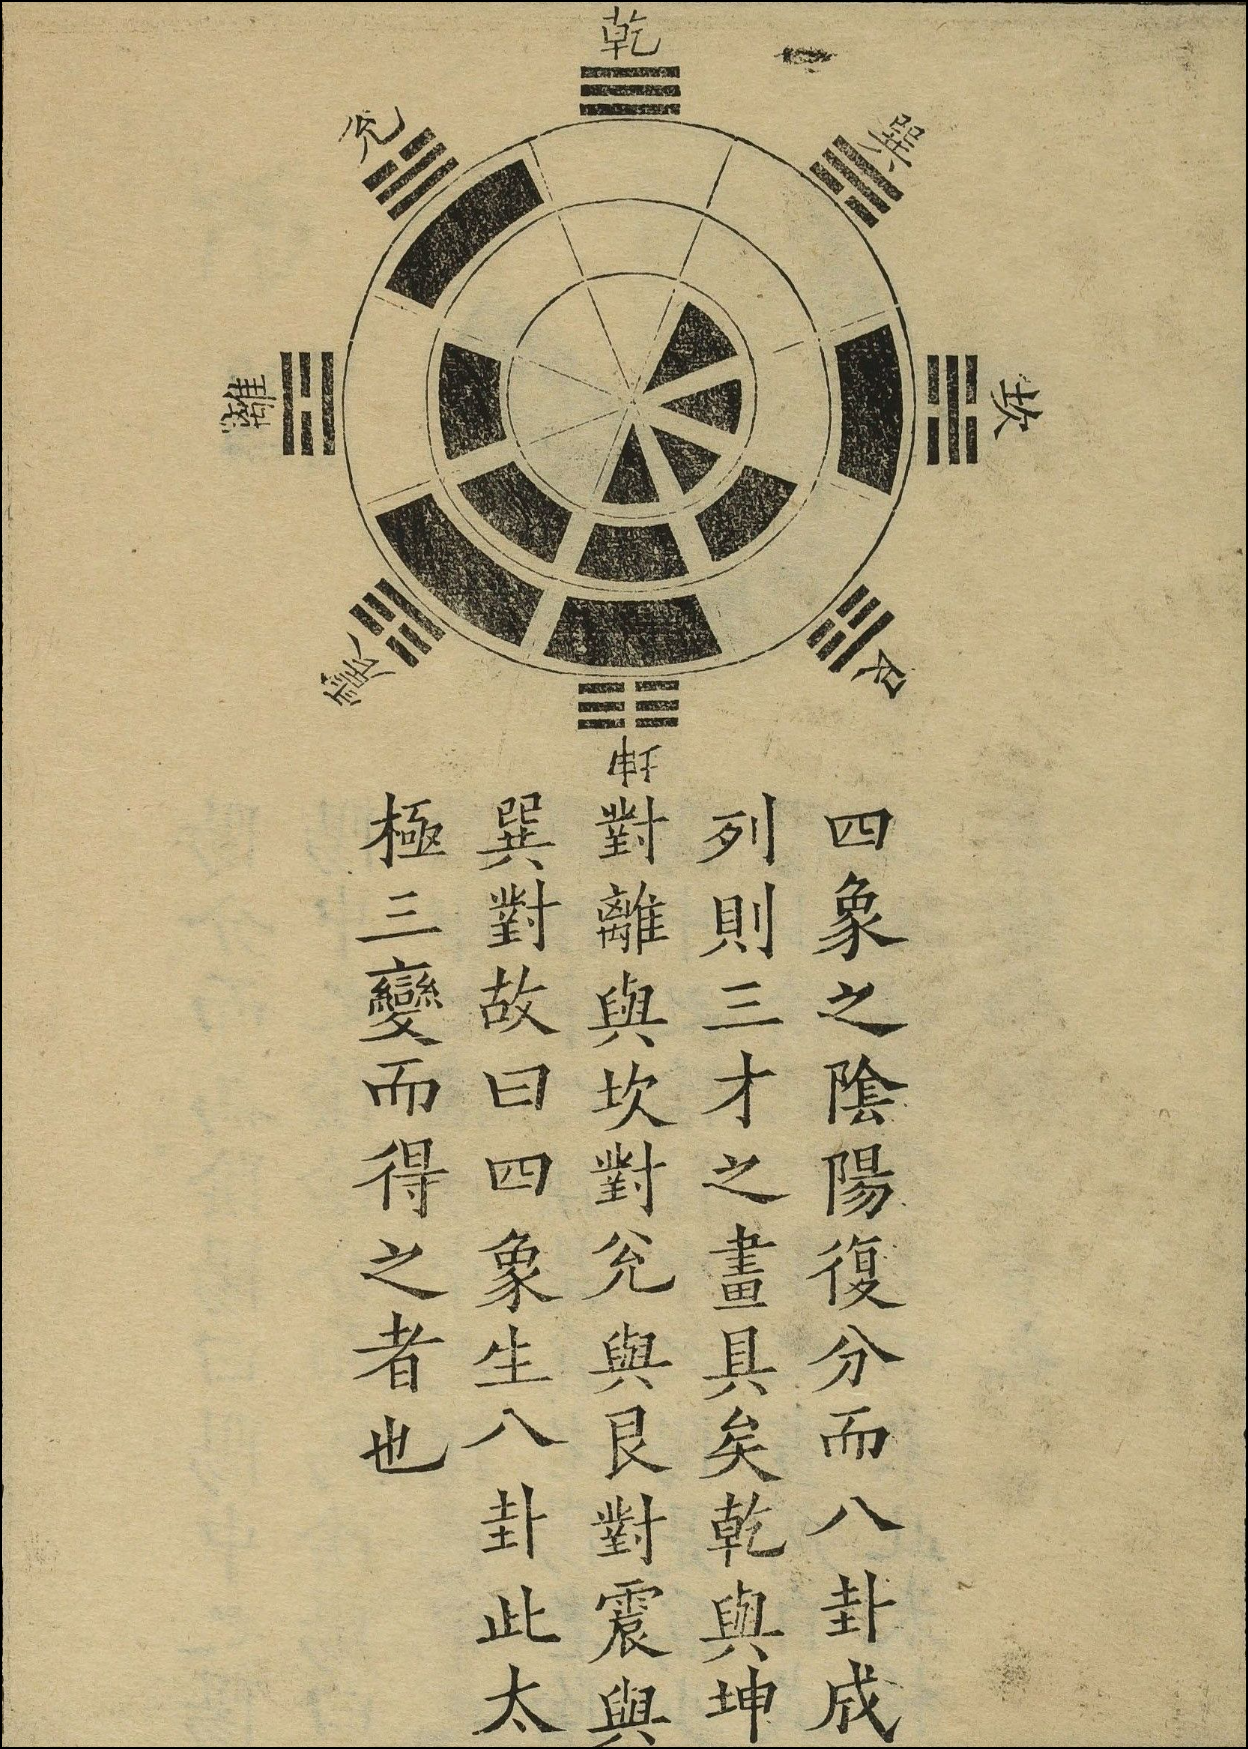 乾
兌
巽
離
坎
震
艮
坤
四象之陰陽復分而八卦成
列則三才之畫具矣乾與坤
對離與坎對兌與艮對震與
巽對故曰四象生八卦此太
極三變而得之者也